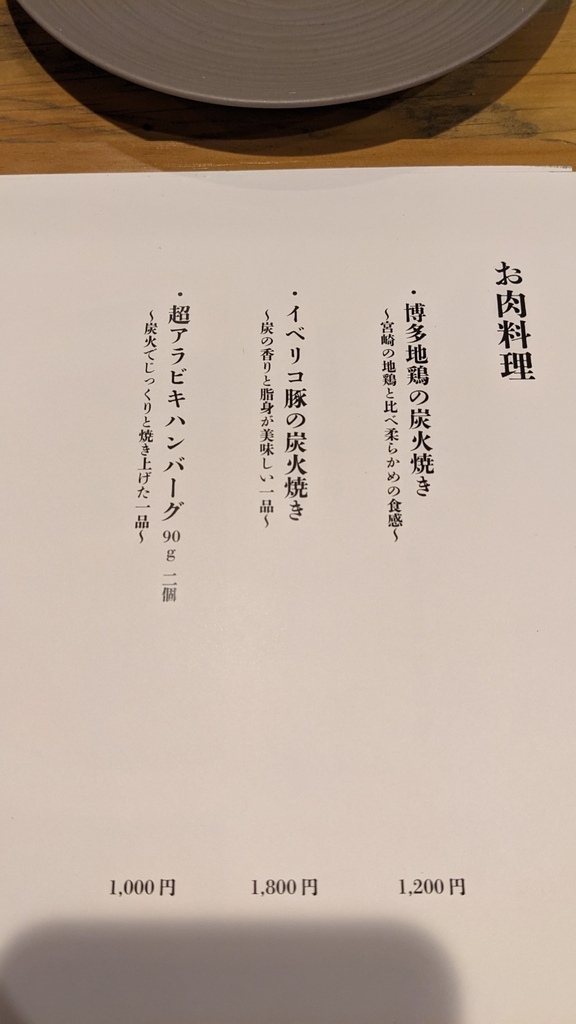 お肉料理
・博多地鶏の炭火焼き
～宮崎の地鶏と比べ柔らかめの食感～
1,200円
・イベリコ豚の炭火焼き
～炭の香りと脂身が美味しい一品～
1,800円
・超アラビキハンバーグ 90g 二個
～炭火でじっくりと焼き上げた一品～
1,000円